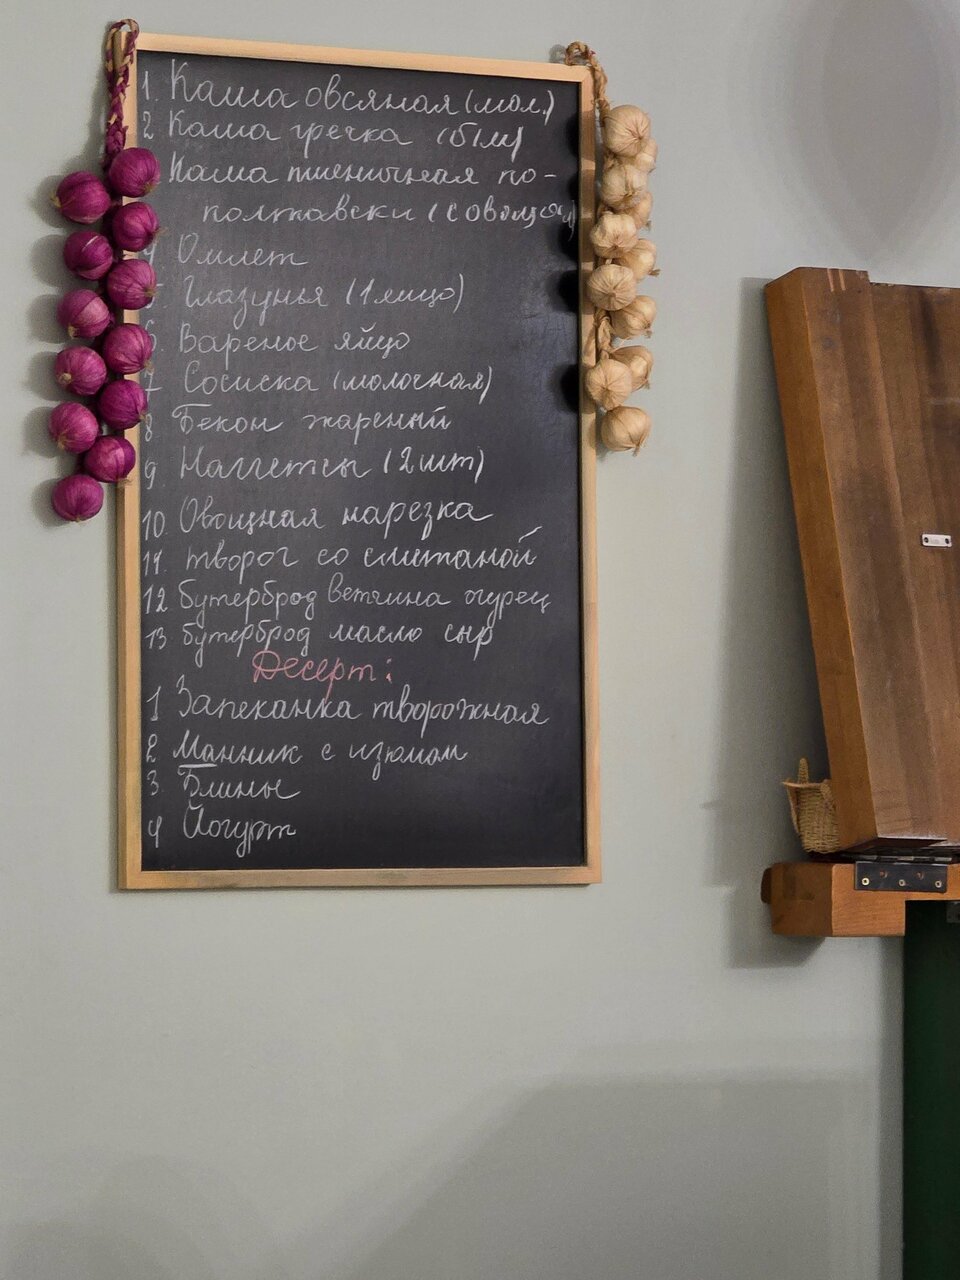 1. Каша овсяная (мол.)
2 Каша гречка (б/м)
Каша пшеничная по-
полтавски (с овощам)
4 Омлет
5. Глазунья (1 яйцо)
6. Вареное яйцо
7 Сосиска (молочная)
8 Бекон жареный
9 Наггетсы (2 шт)
10. Овощная нарезка
11. творог со сметаной
12. бутерброд ветчина огурец
13 бутерброд масло сыр
Десерт:
1 Запеканка творожная
2 Манник с изюмом
3. Блины
4 Йогурт